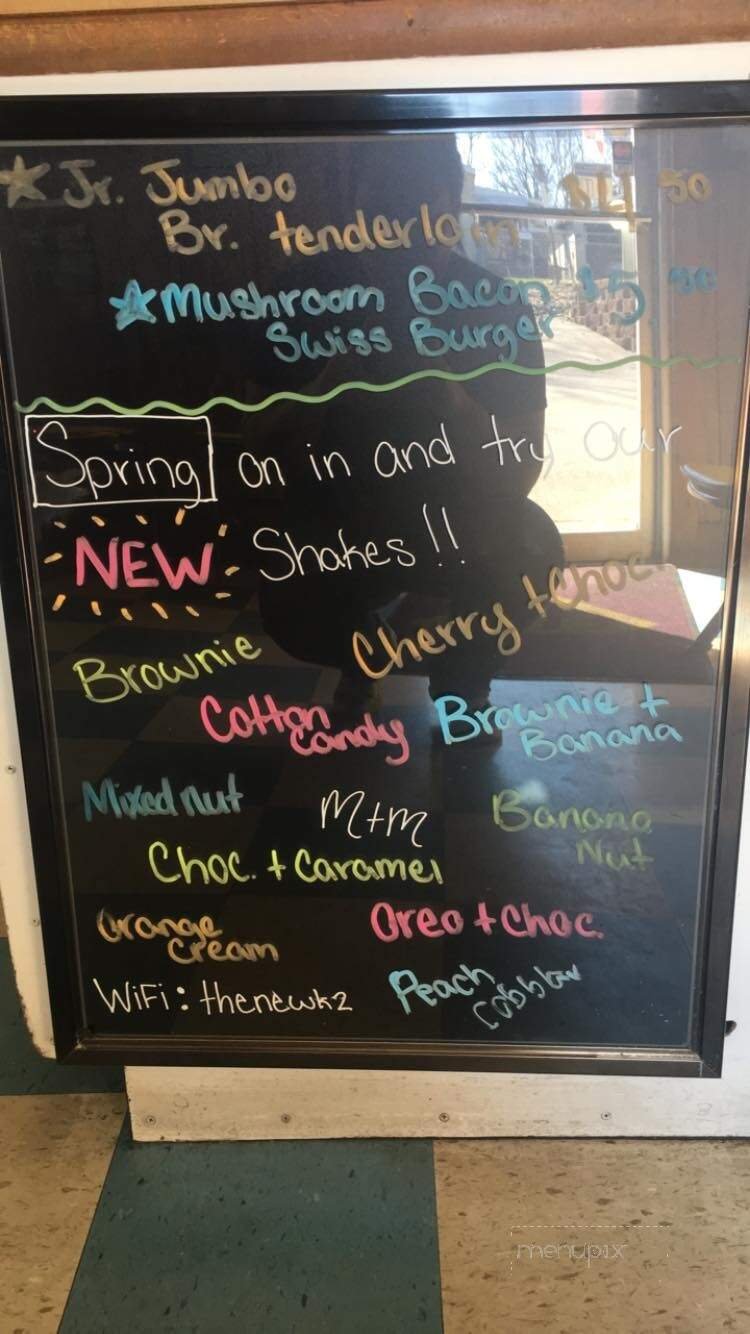 ☆ Jr. Jumbo $4.50
Br. tenderloin
☆ Mushroom Bacon $5.50
Swiss Burger
Spring on in and try our
NEW Shakes!!
Cherry + Choc
Brownie
Cotton Candy
Brownie + Banana
Mixed nut
M+M
Banana Nut
Choc. + Caramel
Orange Cream
Oreo + Choc.
WiFi: thenewk2
Peach Cobbler
menupix